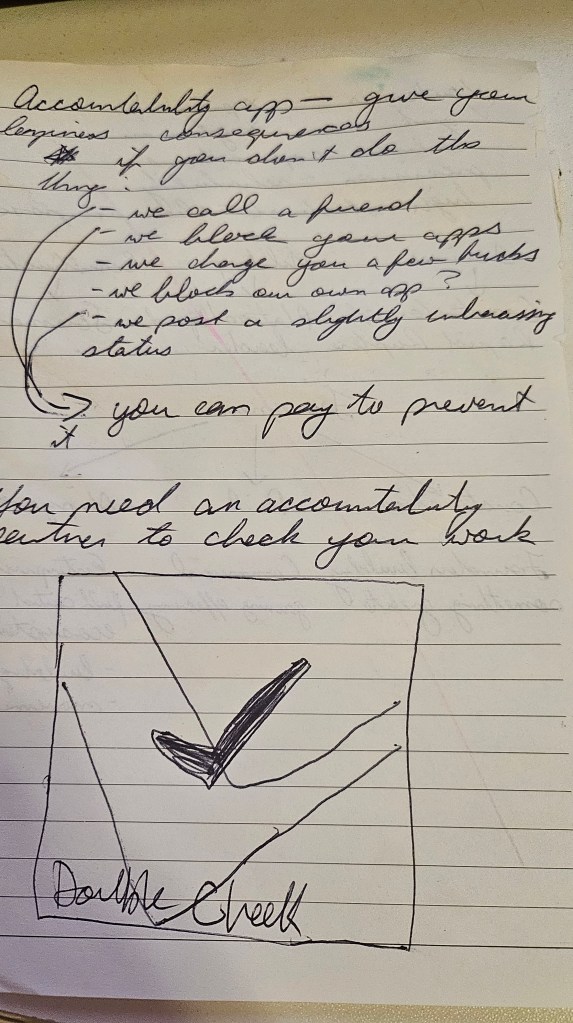 Accountability app — give your
laziness consequences
if you don't do the
thing:
- we call a friend
- we block your apps
- we charge you a few bucks
- we block our own app?
- we post a slightly embarassing
status
you can pay to prevent
it
You need an accountability
partner to check your work
Double Check